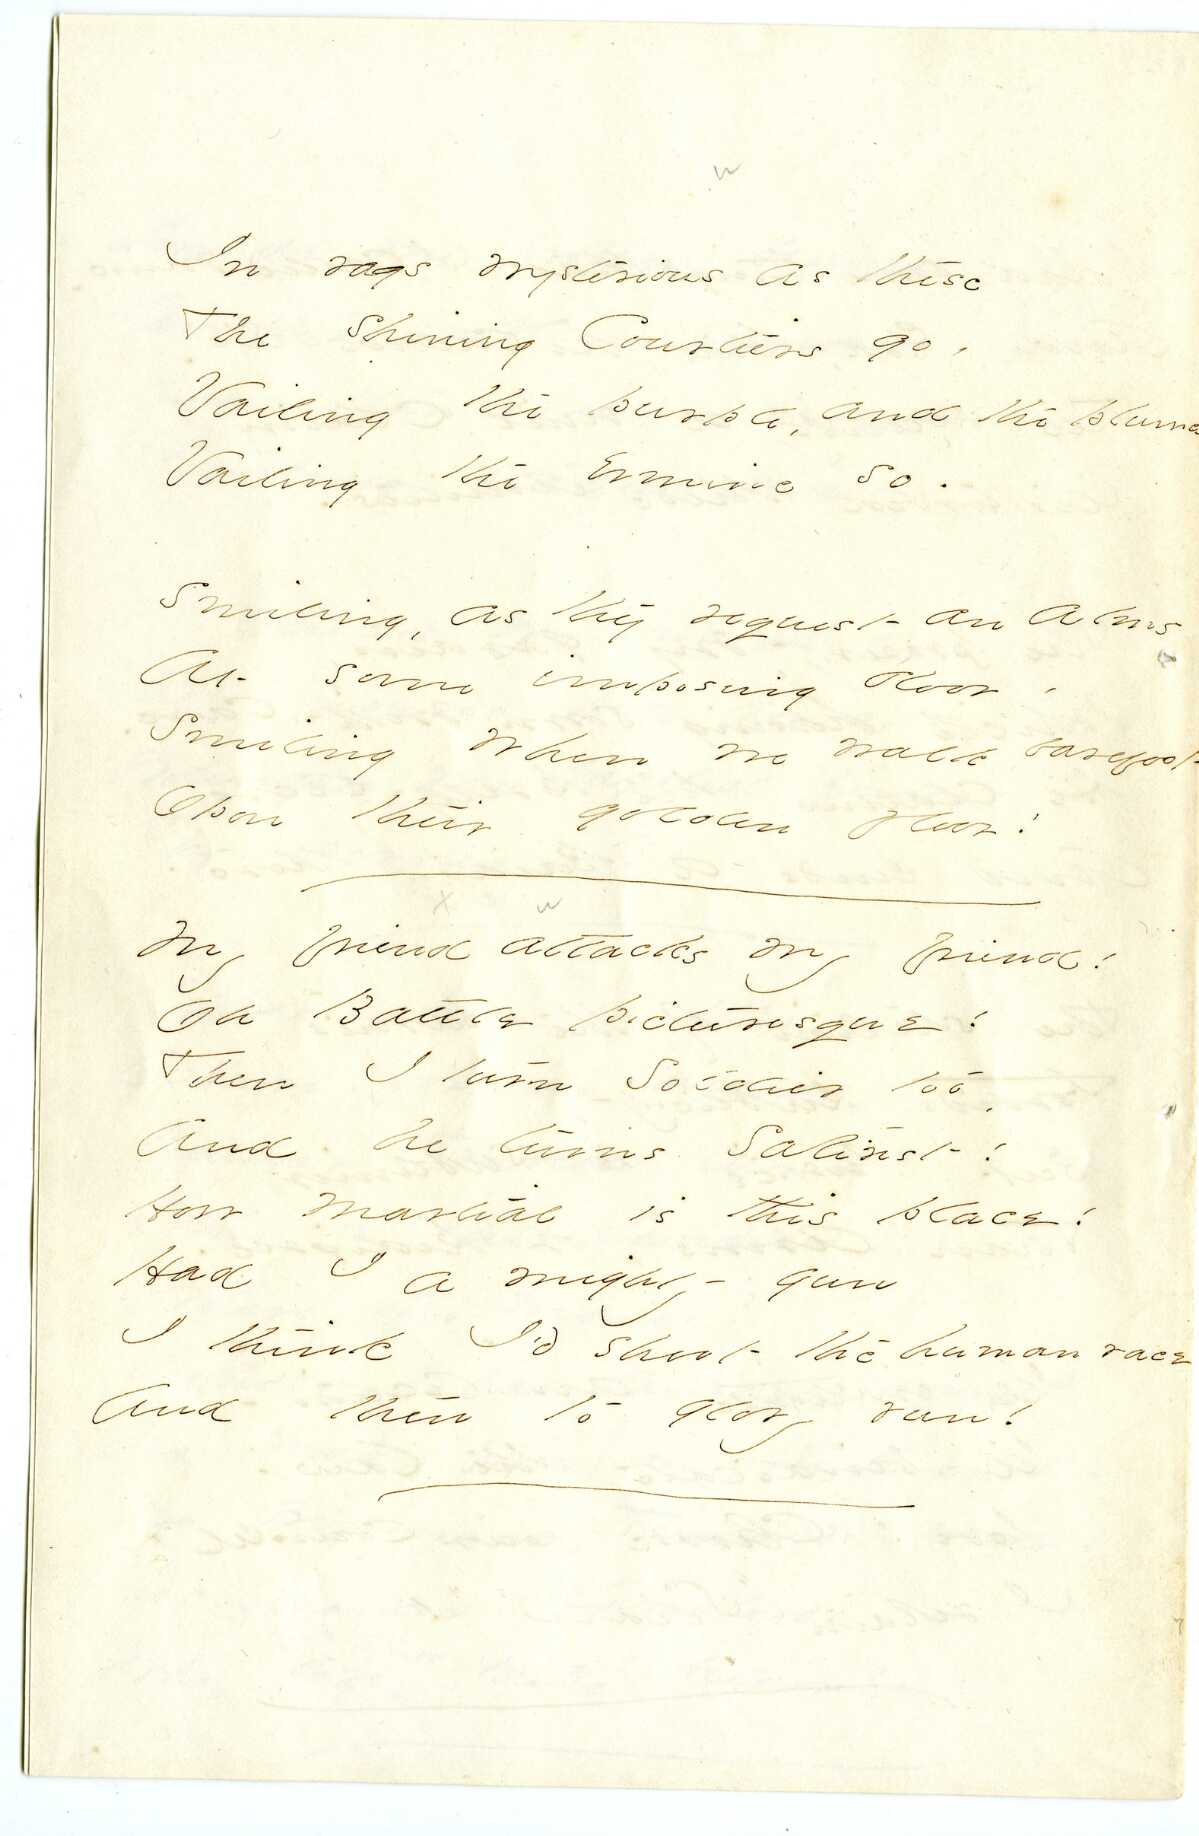 In rags mysterious as these
The shining Courtiers go,
Vailing the purple, and the plumes
Vailing the Ermine so.
Smiling, as they request an alms
At some imposing door,
Smiling when we walk barefoot
Opon their golden floor!
My friend attacks my friend!
Oh Battle picturesque!
Then I turn Soldier too,
And he turns Satirist!
How martial is this place!
Had I a mighty gun
I think I'd shoot the human race
And then to glory run!